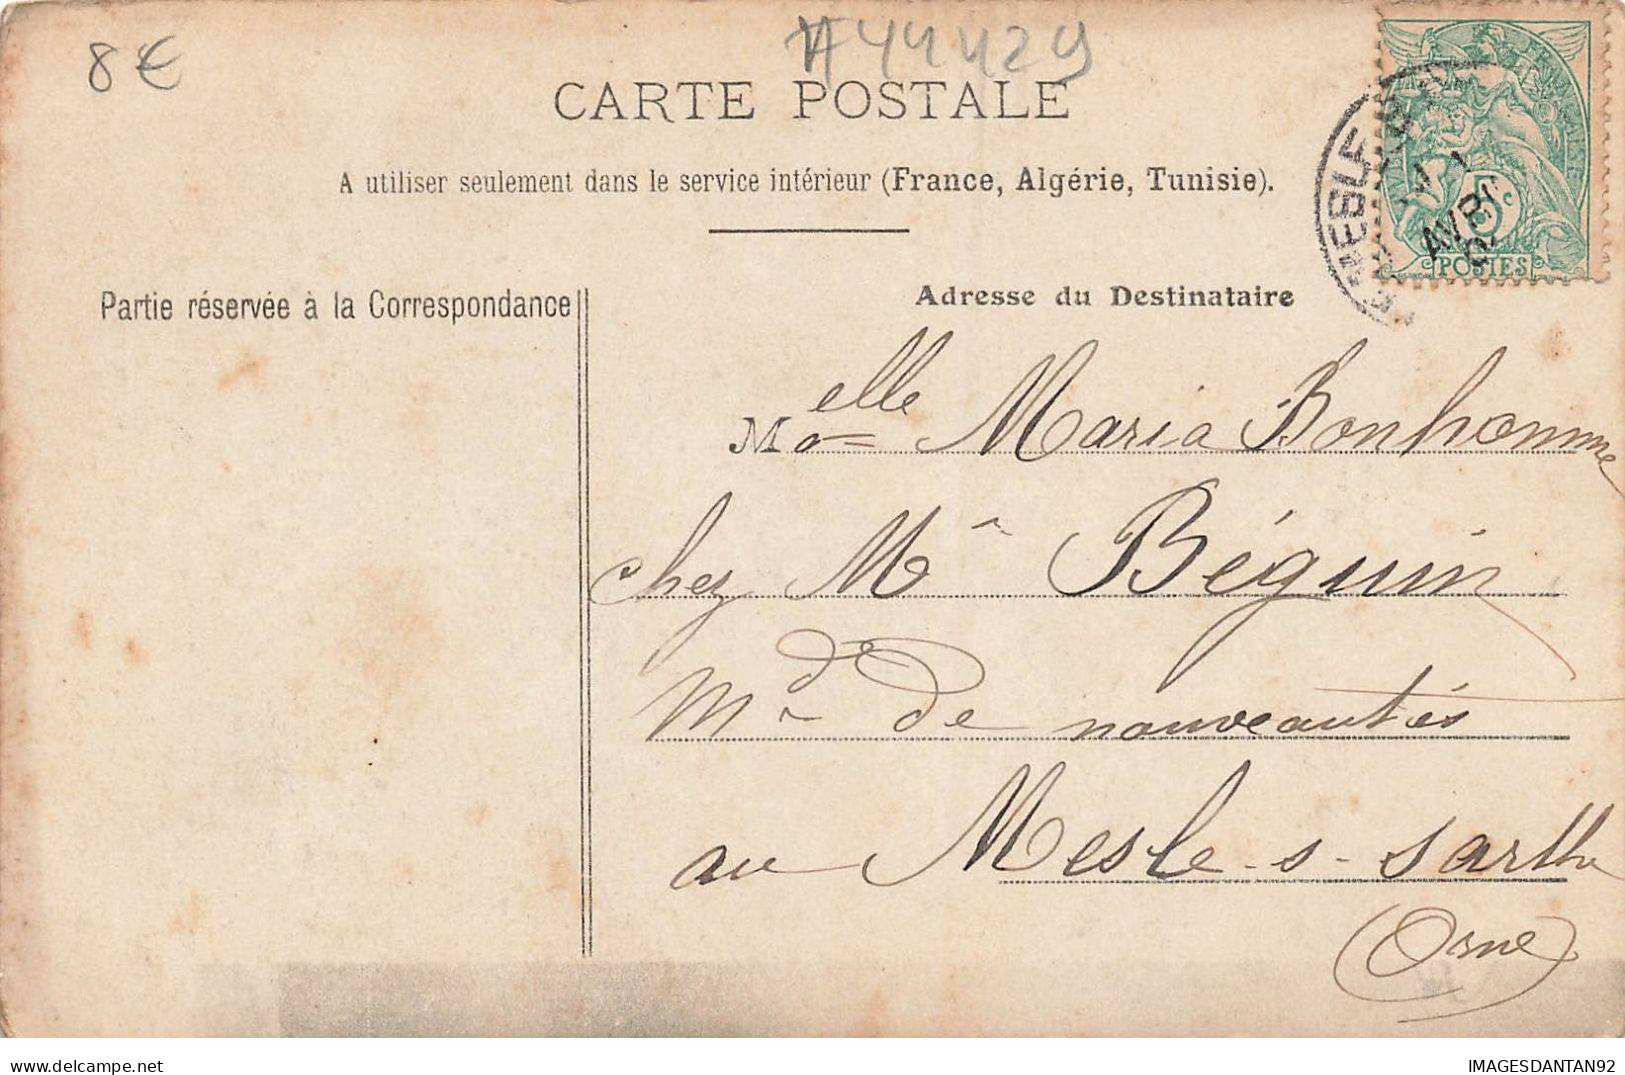 8€
#44429
CARTE POSTALE
A utiliser seulement dans le service intérieur (France, Algérie, Tunisie).
POSTES
5c
AVRIL
MESLE
Partie réservée à la Correspondance
Adresse du Destinataire
Melle Maria Bonhomme
chez Mr Béguin
Md de nouveautés
au Mesle-s-Sarthe
(Orne)
IMAGESDANTAN92